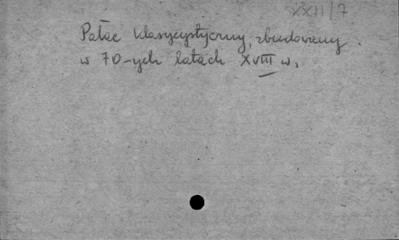 XXII/7
Pałac klasycystyczny, zbudowany
w 70-ych latach XVIII w.